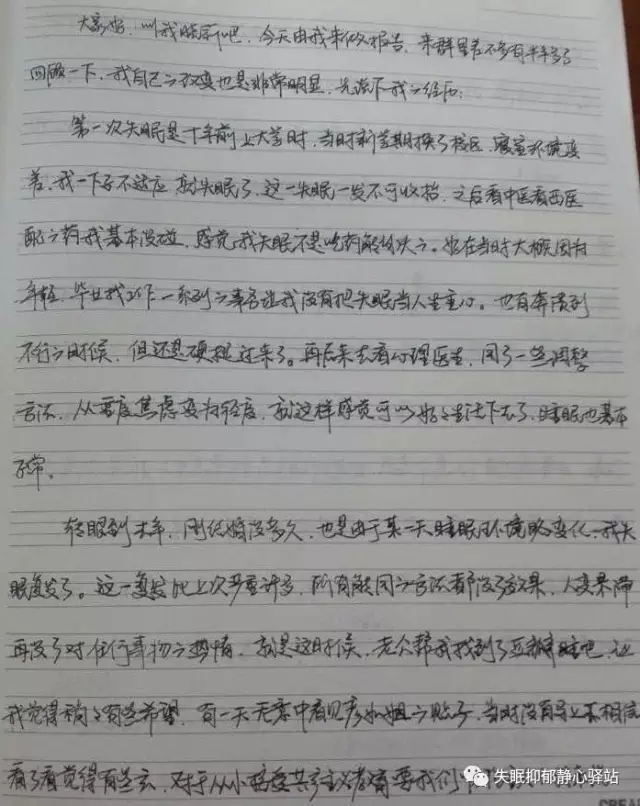 大家好，叫我晓丽吧，今天由我来做报告，来群里差不多有半年多了
回顾一下，我自己的改变也是非常明显，先说下我的经历：
第一次失眠是十年前上大学时，当时新学期换了校区，寝室环境变
差，我一下子不适应就失眠了，这一失眠一发不可收拾，之后看中医看西医
配的药我基本没碰，感觉我失眠不是吃药能解决的。也在当时大概因为
年轻，毕业找工作一系列的事情让我没有把失眠当人生重心。也有奔溃到
不行的时候，但还是硬挺过来了。再后来去看心理医生，用了一些调整
方法，从重度焦虑变为轻度，就这样感觉可以好好生活下去了，睡眠也基本
正常。
转眼到去年，刚结婚没多久，也是由于某一天睡眠环境略变化，我失
眠复发了。这一复发比上次严重许多，所有能用的方法都没了效果，人变呆滞
再没了对任何事物的热情，就是这时候，老公帮我找到了豆瓣睡吧，让
我觉得稍稍有些希望，有一天无意中看见彦小姐的贴子，当时没有马上相信
看了看觉得有些玄，对于从小接受共产主义教育要我们
失眠抑郁静心驿站